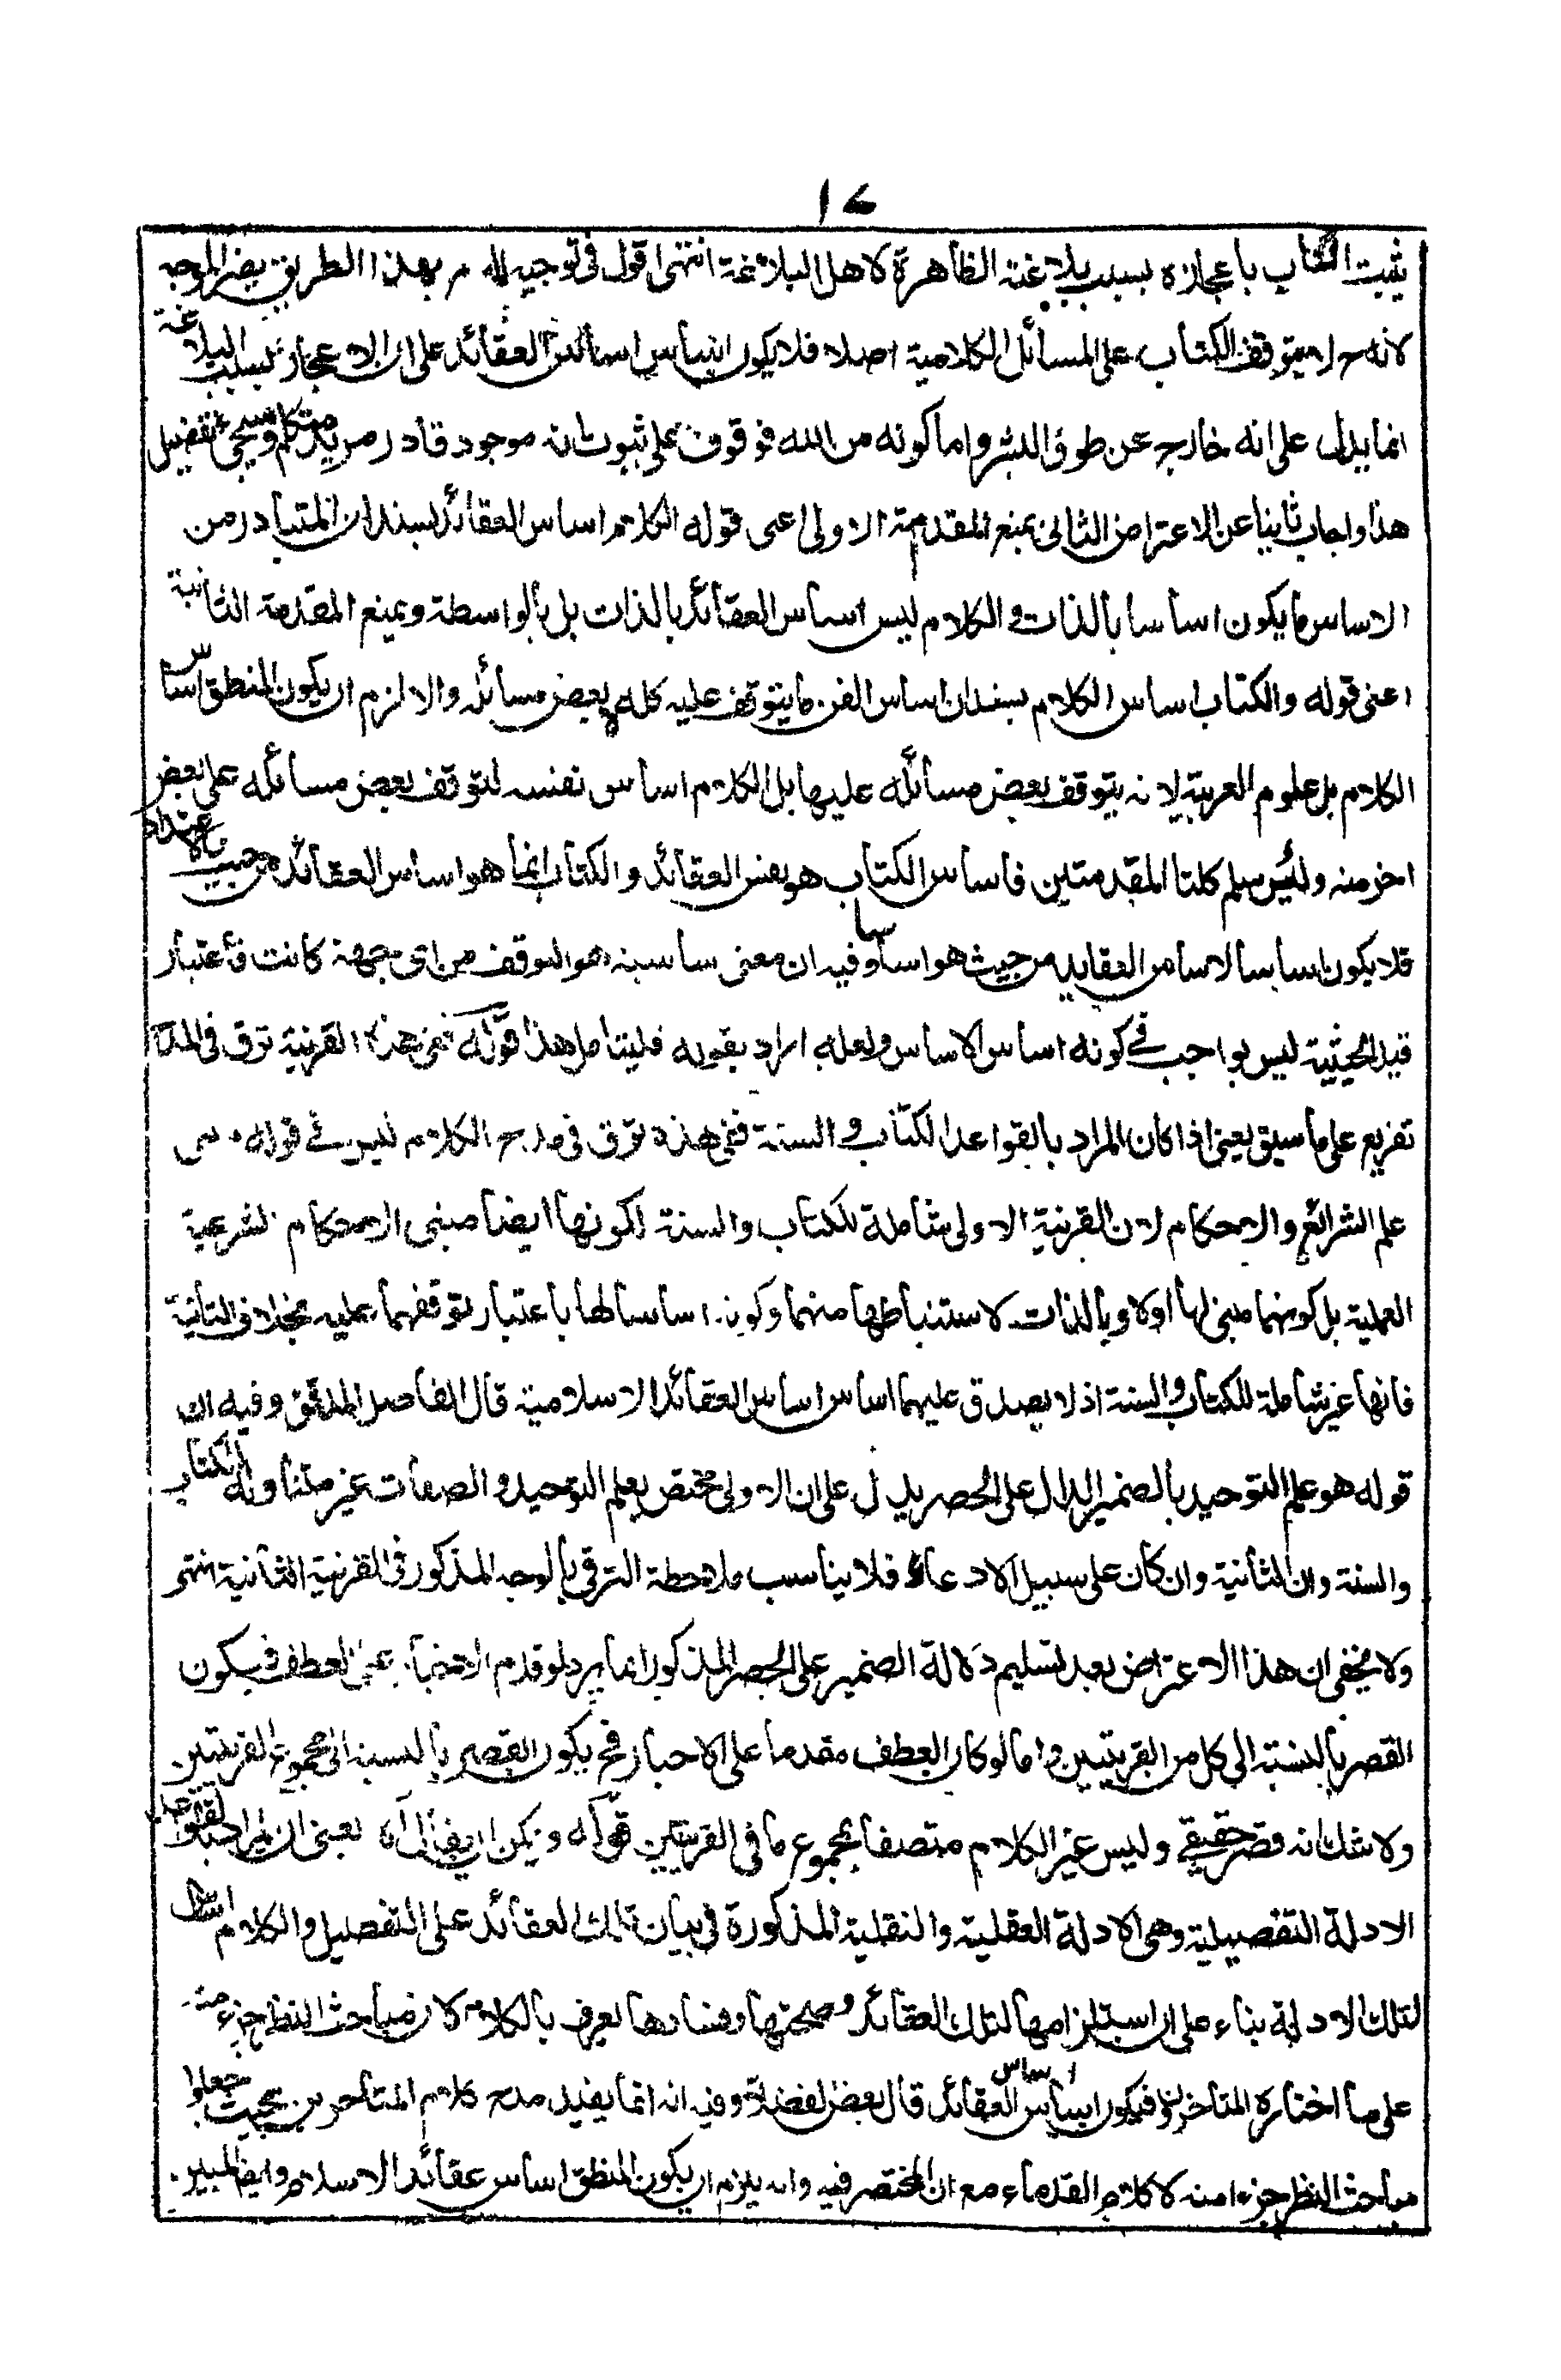 ١٧
يثبت الكتاب باعجازه بسبب بلاغته الظاهرة لاهل البلاغة انتهى اقول فى توجيه له م بهذا الطريق يضر الموجه
لانه ح لا يتوقف الكتاب على المسائل الكلامية اصلا فلا يكون اساس اساس العقائد على ان الاعجاز بسبب البلاغة
انما يدل على انه خارج عن طوق البشر واما كونه من الله فموقوف على ثبوت انه موجود قادر مريد متكلم وسيجئ تفصيل
هذا واجاب ثانيا عن الاعتراض الثانى بمنع المقدمة الاولى اعنى قوله الكلام اساس العقائد بسند ان المتبادر من
الاساس ما يكون اساسا بالذات و الكلام ليس اساس العقائد بالذات بل بالواسطة وبمنع المقدمة الثانية
اعنى قوله والكتاب اساس الكلام بسند ان اساس الفن ما يتوقف عليه كله لا بعض مسائله والا لزم ان يكون المنطق اساس
الكلام بل علوم العربية لانه يتوقف بعض مسائله عليها بل الكلام اساس نفسه لتوقف بعض مسائله على بعض
اخر منه ولئن سلم كلتا المقدمتين فاساس الكتاب هو نفس العقائد والكتاب انما هو اساس العقائد من حيث الاعتداد
فلا يكون اساسا لاساس العقايد من حيث هو اساس وفيه ان معنى اساسيته هو التوقف من اى جهة كانت فاعتبار
قيد الحيثية ليس بواجب فے كونه اساس الاساس ولعله اراد بقوله فليتأمل هذا قوله ففى هذه القرينة ترق فى المدح
تفريع على ما سبق يعنى اذا كان المراد بالقواعد الكتاب و السنة ففى هذه ترق فى مدح الكلام ليس فے قوله مبنى
علم الشرائع والاحكام لان القرينة الاولى شاملة للكتاب والسنة لكونها ايضا مبنى الاحكام الشرعية
العملية بل كونهما مبنى لها اولا وبالذات لاستنباطها منهما وكونه اساسا لها باعتبار توقفهما عليه بخلاف الثانية
فانها غير شاملة للكتاب والسنة اذ لا يصدق عليهما اساس اساس العقائد الاسلامية قال الفاضل المدقق وفيه ان
قوله هو علم التوحيد بالضمير الدال على الحصر يدل على ان الاولى مختص بعلم التوحيد و الصفات غير متناوله الكتاب
والسنة وان الثانية وان كان على سبيل الادعاء فلا يناسب ملاحظة الترقى بالوجه المذكور فى القرينة الثانية انتهى
ولا يخفى ان هذا الاعتراض بعد تسليم دلالة الضمير على الحصر المذكور انما يرد لو قدم الاخبار على العطف فيكون
القصر بالنسبة الى كل من القرينتين واما لو كان العطف مقدما على الاخبار فح يكون القصر بالنسبة الى مجموع القرينتين
ولا شك انه قصر حقيقے وليس غير الكلام متصفا بمجموع ما فى القرينتين قوله ويمكن ان يقال اه يعنى ان المراد بالقواعد
الادلة التفصيلية وهى الادلة العقلية والنقلية المذكورة فى بيان تلك العقائد على التفصيل والكلام اساس
لتلك الادلة بناء على ان استلزامها لتلك العقائد وصحتها وفسادها يعرف بالكلام لان مباحث النظر جزء منه
على ما اختاره المتاخرون فيكون اساس اساس العقائد قال بعض الفضلاء وفيه انه انما يفيد مدح كلام المتأخرين بحيث جعلوا
مباحث النظر جزءا منه لا كلام القدماء مع ان المختصر فيه وانه يلزم ان يكون المنطق اساس عقائد الاسلام وايضا